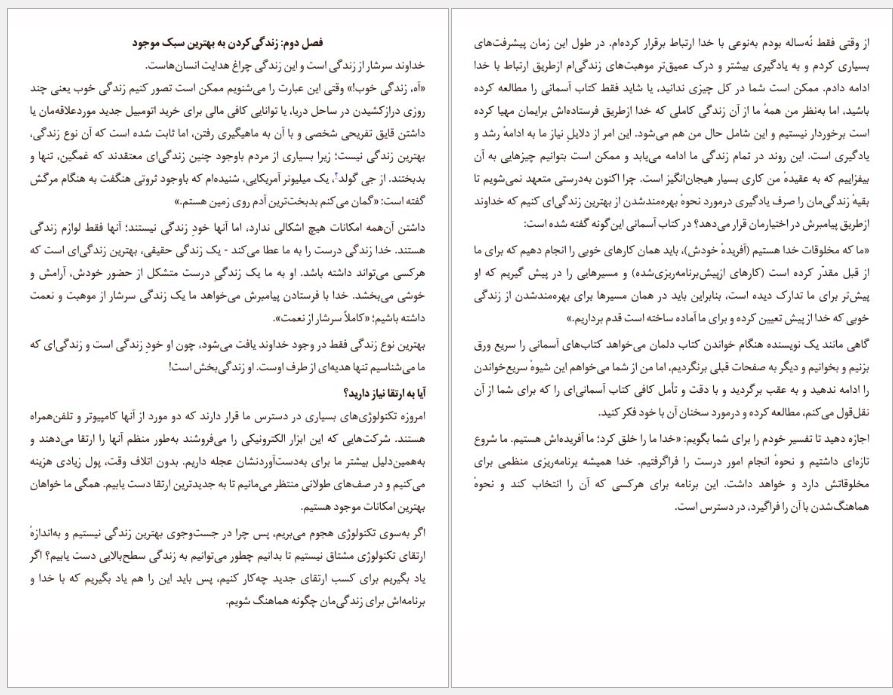 از وقتی فقط نُه‌ساله بودم به‌نوعی با خدا ارتباط برقرار کرده‌ام. در طول این زمان پیشرفت‌های
بسیاری کردم و به یادگیری بیشتر و درک عمیق‌تر موهبت‌های زندگی‌ام ازطریق ارتباط با خدا
ادامه دادم. ممکن است شما در کل چیزی ندانید، یا شاید فقط کتاب آسمانی را مطالعه کرده
باشید، اما به‌نظر من همهٔ ما از آن زندگی کاملی که خدا ازطریق فرستاده‌اش برایمان مهیا کرده
است برخوردار نیستیم و این شامل حال من هم می‌شود. این امر از دلایلِ نیاز ما به ادامهٔ رشد و
یادگیری است. این روند در تمام زندگی ما ادامه می‌یابد و ممکن است بتوانیم چیزهایی به آن
بیفزاییم که به عقیدهٔ من کاری بسیار هیجان‌انگیز است. چرا اکنون به‌درستی متعهد نمی‌شویم تا
بقیهٔ زندگی‌مان را صرف یادگیری درمورد نحوهٔ بهره‌مندشدن از بهترین زندگی‌ای کنیم که خداوند
ازطریق پیامبرش در اختیارمان قرار می‌دهد؟ در کتاب آسمانی این‌گونه گفته شده است:
«ما که مخلوقات خدا هستیم (آفریدهٔ خودش)، باید همان کارهای خوبی را انجام دهیم که برای ما
از قبل مقدّر کرده است (کارهای ازپیش‌برنامه‌ریزی‌شده) و مسیرهایی را در پیش گیریم که او
پیش‌تر برای ما تدارک دیده است، بنابراین باید در همان مسیرها برای بهره‌مندشدن از زندگی
خوبی که خدا از پیش تعیین کرده و برای ما آماده ساخته است قدم برداریم.»
گاهی مانند یک نویسنده هنگام خواندن کتاب دلمان می‌خواهد کتاب‌های آسمانی را سریع ورق
بزنیم و بخوانیم و دیگر به صفحات قبلی برنگردیم، اما من از شما می‌خواهم این شیوهٔ سریع‌خواندن
را ادامه ندهید و به عقب برگردید و با دقت و تأمل کافی کتاب آسمانی‌ای را که برای شما از آن
نقل‌قول می‌کنم، مطالعه کرده و درمورد سخنان آن با خود فکر کنید.
اجازه دهید تا تفسیر خودم را برای شما بگویم: «خدا ما را خلق کرد؛ ما آفریده‌اش هستیم. ما شروع
تازه‌ای داشتیم و نحوهٔ انجام امور درست را فراگرفتیم. خدا همیشه برنامه‌ریزی منظمی برای
مخلوقاتش دارد و خواهد داشت. این برنامه برای هرکسی که آن را انتخاب کند و نحوهٔ
هماهنگ‌شدن با آن را فراگیرد، در دسترس است.
فصل دوم: زندگی‌کردن به بهترین سبک موجود
خداوند سرشار از زندگی است و این زندگی چراغ هدایت انسان‌هاست.
«آه، زندگی خوب!» وقتی این عبارت را می‌شنویم ممکن است تصور کنیم زندگی خوب یعنی چند
روزی درازکشیدن در ساحل دریا، یا توانایی کافی مالی برای خرید اتومبیل جدید موردعلاقه‌مان یا
داشتن قایق تفریحی شخصی و با آن به ماهیگیری رفتن، اما ثابت شده است که آن نوع زندگی،
بهترین زندگی نیست؛ زیرا بسیاری از مردم باوجود چنین زندگی‌ای معتقدند که غمگین، تنها و
بدبختند. از جی گولد۲، یک میلیونر آمریکایی، شنیده‌ام که باوجود ثروتی هنگفت به هنگام مرگش
گفته است: «گمان می‌کنم بدبخت‌ترین آدم روی زمین هستم.»
داشتن آن‌همه امکانات هیچ اشکالی ندارد، اما آنها خودِ زندگی نیستند؛ آنها فقط لوازم زندگی
هستند. خدا زندگی درست را به ما عطا می‌کند - یک زندگی حقیقی، بهترین زندگی‌ای است که
هرکسی می‌تواند داشته باشد. او به ما یک زندگیِ درست متشکل از حضور خودش، آرامش و
خوشی می‌بخشد. خدا با فرستادن پیامبرش می‌خواهد ما یک زندگی سرشار از موهبت و نعمت
داشته باشیم؛ «کاملاً سرشار از نعمت».
بهترین نوع زندگی فقط در وجود خداوند یافت می‌شود، چون او خودِ زندگی است و زندگی‌ای که
ما می‌شناسیم تنها هدیه‌ای از طرف اوست. او زندگی‌بخش است!
آیا به ارتقا نیاز دارید؟
امروزه تکنولوژی‌های بسیاری در دسترس ما قرار دارند که دو مورد از آنها کامپیوتر و تلفن‌همراه
هستند. شرکت‌هایی که این ابزار الکترونیکی را می‌فروشند به‌طور منظم آنها را ارتقا می‌دهند و
به‌همین‌دلیل بیشتر ما برای به‌دست‌آوردنشان عجله داریم. بدون اتلاف وقت، پول زیادی هزینه
می‌کنیم و در صف‌های طولانی منتظر می‌مانیم تا به جدیدترین ارتقا دست یابیم. همگی ما خواهان
بهترین امکانات موجود هستیم.
اگر به‌سوی تکنولوژی هجوم می‌بریم، پس چرا در جست‌وجوی بهترین زندگی نیستیم و به‌اندازهٔ
ارتقای تکنولوژی مشتاق نیستیم تا بدانیم چطور می‌توانیم به زندگی سطح‌بالایی دست یابیم؟ اگر
یاد بگیریم برای کسب ارتقای جدید چه‌کار کنیم، پس باید این را هم یاد بگیریم که با خدا و
برنامه‌اش برای زندگی‌مان چگونه هماهنگ شویم.